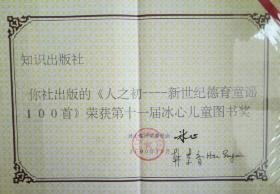 知识出版社
你社出版的《人之初----新世纪德育童谣
100首》荣获第十一届冰心儿童图书奖
冰心